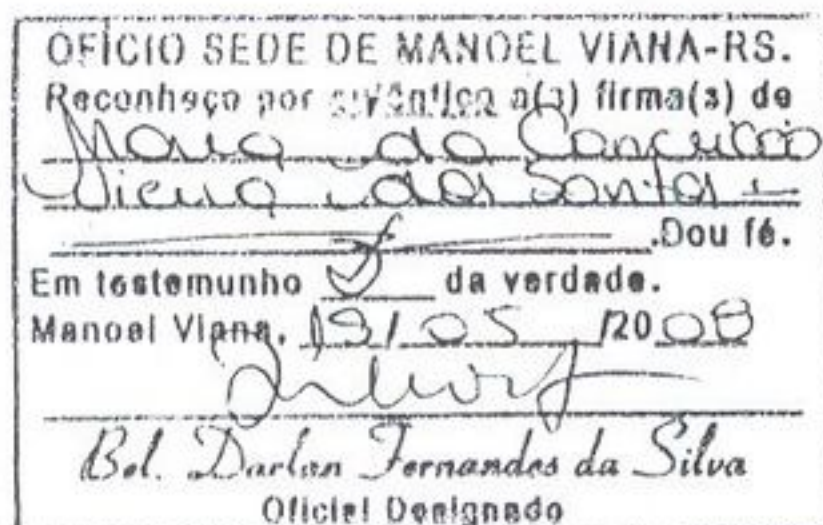 OFÍCIO SEDE DE MANOEL VIANA-RS.
Reconheço por autêntica a(s) firma(s) de
Maria da Conceição
Vieira dos Santos
.Dou fé.
Em testemunho da verdade.
Manoel Viana, 19/05/2008
Bel. Darlan Fernandes da Silva
Oficial Designado